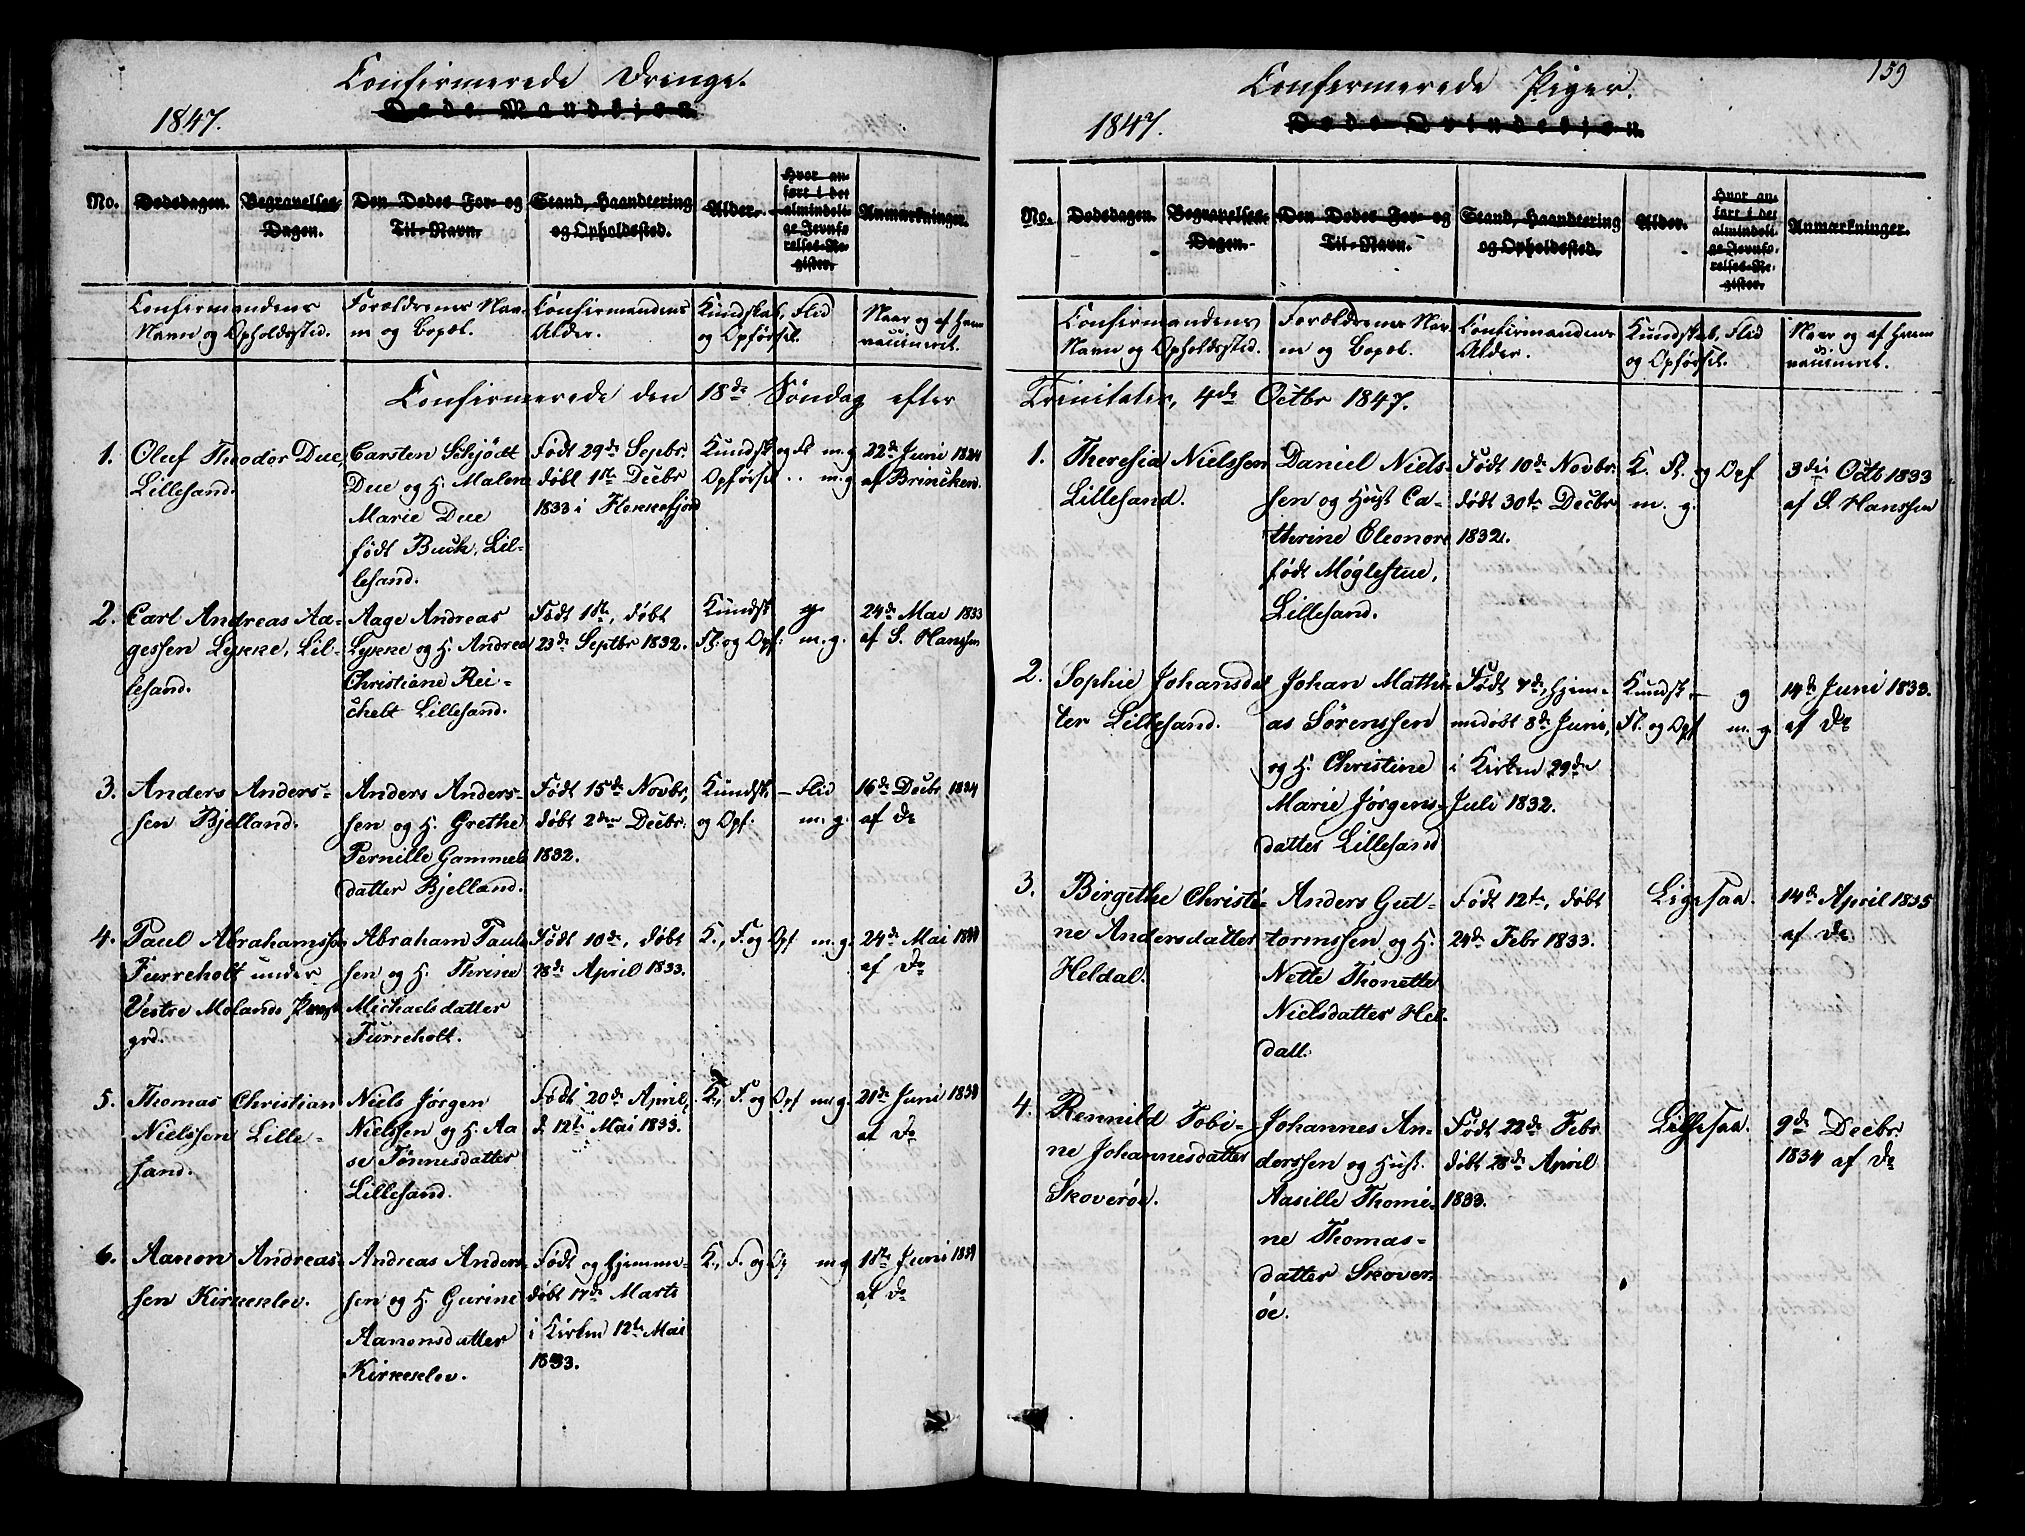 Confirmerede Drenge.
1847.
Døde Mandkjøn.
No.
Dødsdagen.
Begravelses-
Dagen.
Den Dødes For- og
Til-Navn.
Stand, Haandtering
og Opholdssted.
Alder.
Hvor an-
ført i det
almindeli-
ge Jevnfø-
relses-Re-
gister.
Anmærkninger.
Confirmandens
Navn og Opholdssted.
Forældrenes Nav-
n og Bopæl.
Confirmandens
Alder.
Kundskab, Flid
og Opførsel.
Naar og af hvem
vaccineret.
Confirmerede den 18de Søndag efter
1. Oluf Theodor Due,
Lillesand.
Carsten Schjødt
Due og H. Malene
Marie Due
født Buch, Lil-
lesand.
Født 29de Septbr
døbt 1ste Decbr
1833 i Flekkefjord
Kundsk og Fl m.g
Opførsel .. m.g
22de Juni 1834
af Brincken.
2. Carl Andreas Aa-
gessen Lykke, Lil-
lesand.
Aage Andreas
Lykke og H. Andrea
Christiane Rei-
chelt Lillesand.
Født 1ste, døbt
23de Septbr 1832.
Kundsk g
Fl: og Opf: m.g.
24de Mai 1833
af S. Hanssen
3. Anders Anders-
sen Bjelland.
Anders Anders-
sen og H. Grethe
Pernille Gammels
datter Bjelland.
Født 15de Novbr,
døbt 2den Decbr.
1832.
Kundsk. – Flid
og Opf: m.g.
16de Decbr 1834
af Do
4. Paul Abrahamssen
Furreholt under
Vestre Molands Præste
grd.
Abraham Pauls
sen og H. Thrine
Michaelsdatter
Furreholt.
Født 10de, døbt
28de April 1833.
K., F. og Opf m.g.
24de Mai
af Do
5. Thomas Christian
Nielssen Lille-
sand.
Niels Jørgen
Nielssen og H. Aa
se Tønnesdatter
Lillesand.
Født 20de April,
d. 12te Mai 1833.
K., F. og Opf m.g.
21de Juni
af Do
6. Aanon Andreas-
sen Kirkeklev.
Andreas Anders-
sen og H. Gurine
Aanonsdatter
Kirkeklev.
Født og hjemme-
døbt 17de Marts
i Kirken 12te Mai
1833.
K., F. og Op m.g
1ste Juni
af Do
159
Confirmerede Piger.
1847.
Døde Qvindekjøn.
No.
Dødsdagen.
Begravelses-
Dagen.
Den Dødes For- og
Til-Navn.
Stand, Haandtering
og Opholdssted.
Alder.
Hvor an-
ført i det
almindeli-
ge Jevnfø-
relses-Re-
gister.
Anmærkninger.
Confirmandens
Navn og Opholdssted.
Forældrenes Nav-
n og Bopæl.
Confirmandens
Alder.
Kundskab, Flid
og Opførsel.
Naar og af hvem
vaccineret.
Trinitatis, 4de Octbr 1847.
1. Theresia Nielssen
Lillesand.
Daniel Niels-
sen og Hust Ca-
thrine Eleonore
født Møglestue,
Lillesand.
Født 10de Novbr.
døbt 30te Decbr
1832.
K. Fl. og Opf
m. g.
3die Octb 1833
af S. Hanssen
2. Sophie Johansdat
ter Lillesand.
Johan Mathi-
as Sørenssen
og H. Christine
Marie Jørgens-
datter Lillesand
Født 7de, hjem-
medøbt 8de Juni,
i Kirken 29de
Juli 1832.
Kundsk – g
Fl. og Opf m.g.
14de Juni 1833.
af Do
3. Birgithe Christi-
ne Andersdatter
Heldal.
Anders Gut-
tormssen og H.
Nette Thonette
Nielsdatter Hel-
dall.
Født 12te, døbt
24de Febr 1833.
Ligesaa.
14de April 1835
af Do
4. Rennild Tobi-
ne Johannesdatter
Skoverøe.
Johannes An-
derssen og Hust.
Aasille Thomi-
ne Thomas-
datter Skover-
øe.
Født 22de Febr.
døbt 28de April
1833.
Ligesaa.
9de Decbr
1834 af Do